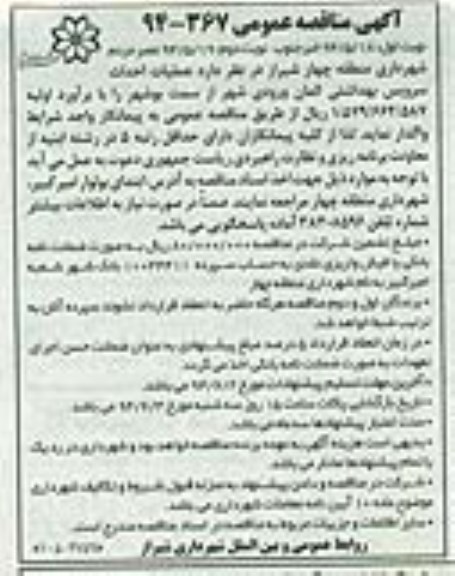 آگهی مناقصه عمومی ۳۶۷-۹۴
نوبت اول: خبر جنوب نوبت دوم: عصر مردم
شهرداری منطقه چهار شیراز در نظر دارد عملیات احداث
سرویس بهداشتی المان ورودی شهر از سمت بوشهر را با برآورد اولیه
ریال از طریق مناقصه عمومی به پیمانکار واجد شرایط
واگذار نماید. لذا از کلیه پیمانکاران دارای حداقل رتبه ۵ در رشته ابنیه از
معاونت برنامه ریزی و نظارت راهبردی ریاست جمهوری دعوت به عمل می آید
با توجه به موارد ذیل جهت اخذ اسناد مناقصه به آدرس ابتدای بولوار امیرکبیر،
شهرداری منطقه چهار مراجعه نمایند. ضمناً در صورت نیاز به اطلاعات بیشتر
شماره تلفن آماده پاسخگویی می باشد.
• مبلغ تضمین شرکت در مناقصه ریال به صورت ضمانت نامه
بانکی یا فیش واریزی نقدی به حساب سپرده بانک شهر شعبه
امیرکبیر به نام شهرداری منطقه چهار
• برندگان اول و دوم مناقصه هرگاه حاضر به انعقاد قرارداد نشوند سپرده آنان به
ترتیب ضبط خواهد شد.
• در زمان انعقاد قرارداد ۵ درصد مبلغ پیشنهادی به عنوان ضمانت حسن اجرای
تعهدات به صورت ضمانت نامه بانکی اخذ می گردد.
• آخرین مهلت تسلیم پیشنهادات مورخ می باشد.
• تاریخ بازگشایی پاکات ساعت ۱۵ روز سه شنبه مورخ می باشد.
• مدت اعتبار پیشنهادها سه ماه می باشد.
• بدیهی است هزینه آگهی به عهده برنده مناقصه خواهد بود و شهرداری در رد یک
یا تمام پیشنهادها مختار می باشد.
• شرکت در مناقصه و دادن پیشنهاد به منزله قبول شروط و تکالیف شهرداری
موضوع ماده ۱۰ آیین نامه معاملات شهرداری می باشد.
• سایر اطلاعات و جزییات مربوط به مناقصه در اسناد مناقصه مندرج است.
روابط عمومی و بین الملل شهرداری شیراز